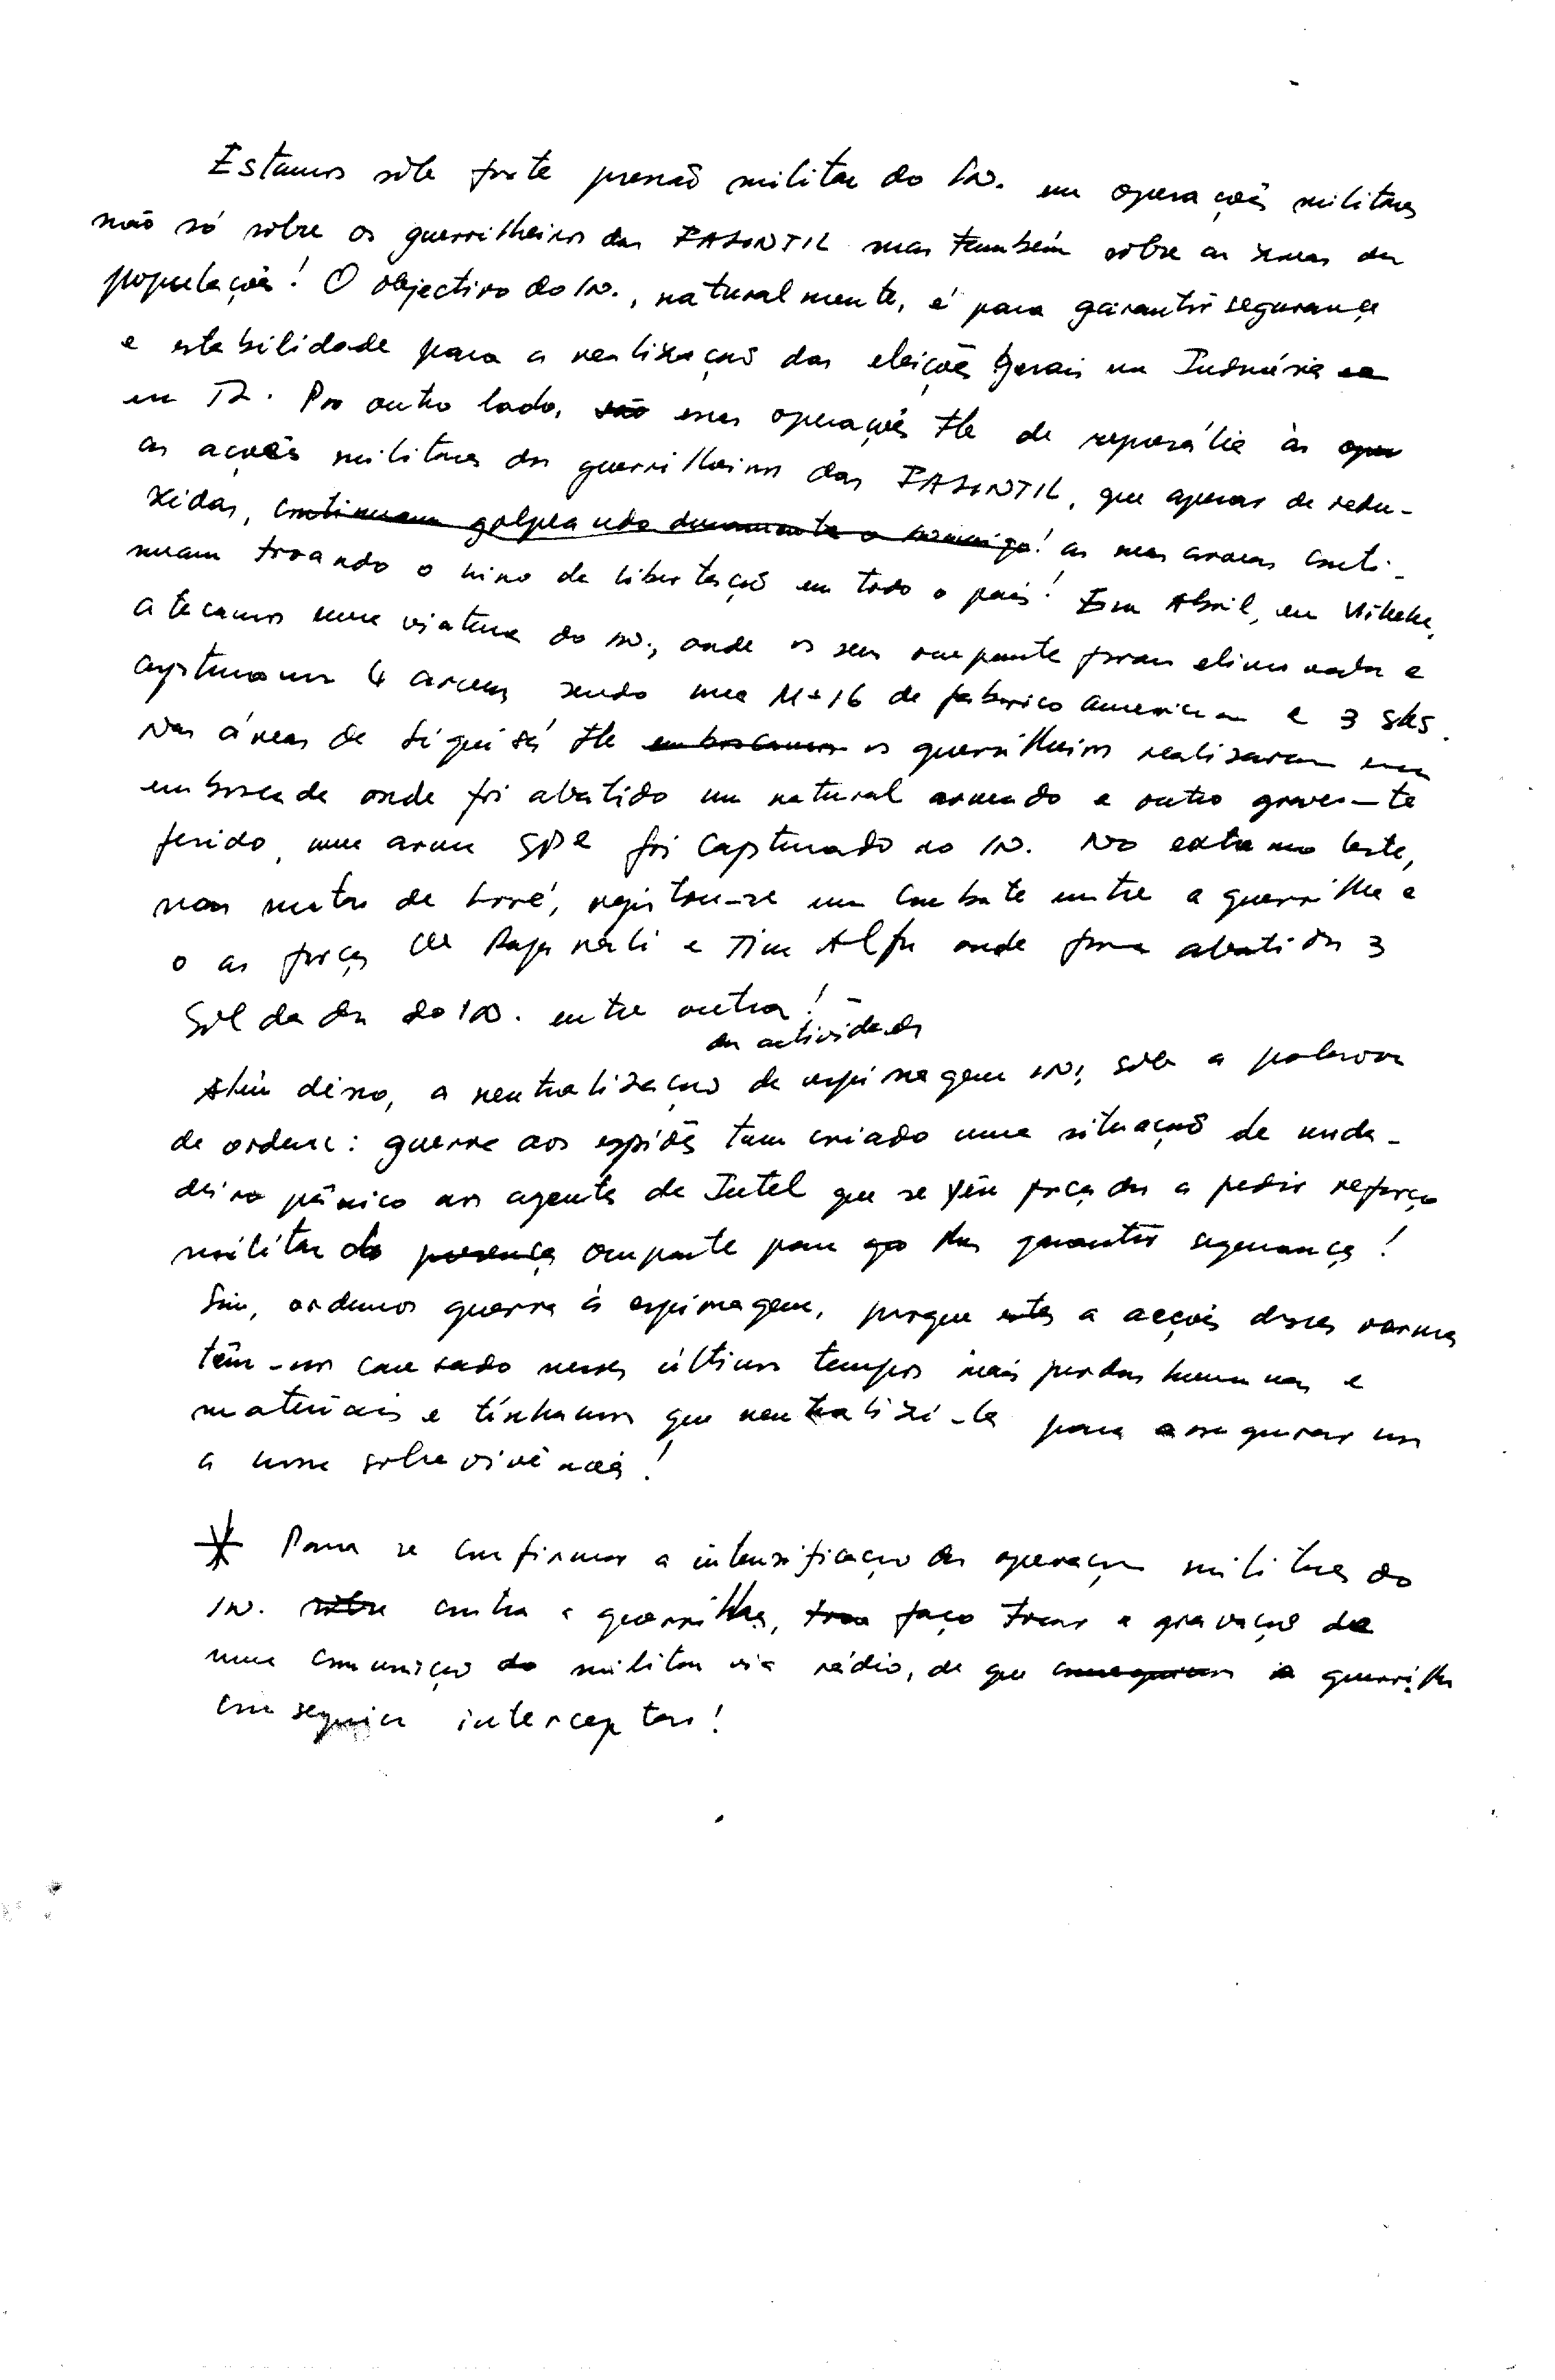 Estamos sôb forte pressão militar do IN. em operações militares
não só sôbre os guerrilheiros das FALINTIL mas também sôbre as zonas da
população! O objectivo do IN., naturalmente, é para garantir segurança
e estabilidade para a realização das eleições gerais na Indonésia
em TL. Por outro lado, essas operações tb de represália às
as acções militares dos guerrilheiros das FALINTIL, que apesar de redu-
zidas, continuam golpeando duramente o inimigo! as suas armas conti-
nuam troando o hino da libertação em todo o país! Em Abril, em Vikeke,
atacamos uma viatura do IN., onde os seus ocupante foram eliminados e
capturamos 4 armas sendo uma M-16 de fabrico americano e 3 SKS.
Nas áreas de Liquisá tb emboscamos os guerrilheiros realizaram uma
emboscada onde foi abatido um natural armado e outro gravemente
ferido, uma arma foi capturado ao IN. No extremo leste,
nas matas de Loré, registou-se um combate entre a guerrilha e
o as forças de Raja Wali e Tim Alfa onde foram abatidos 3
Soldados do IN. entre outros!
das actividades
Além disso, a neutralização de espionagem IN, sob a palavra
de ordem: guerra aos espiões tem criado uma situação de verda-
deiro pânico aos agentes da Intel que se vêm forçados a pedir reforço
militar do presença ocupante para lhes garantir segurança!
Sim, ordenos guerra à espionagem, porque estes a acções desses
têm-nos causado nesses últimos tempos mais perdas humanas e
materiais e tínhamos que neutralizá-la para assegurar nos
a nossa sobrevivência!
* Para se confirmar a intensificação das operações militares do
IN. sôbre contra a guerrilha, faço tocar a gravação de
uma comunicação do militar via rádio, de que conseguimos a guerrilha
conseguiu interceptar!